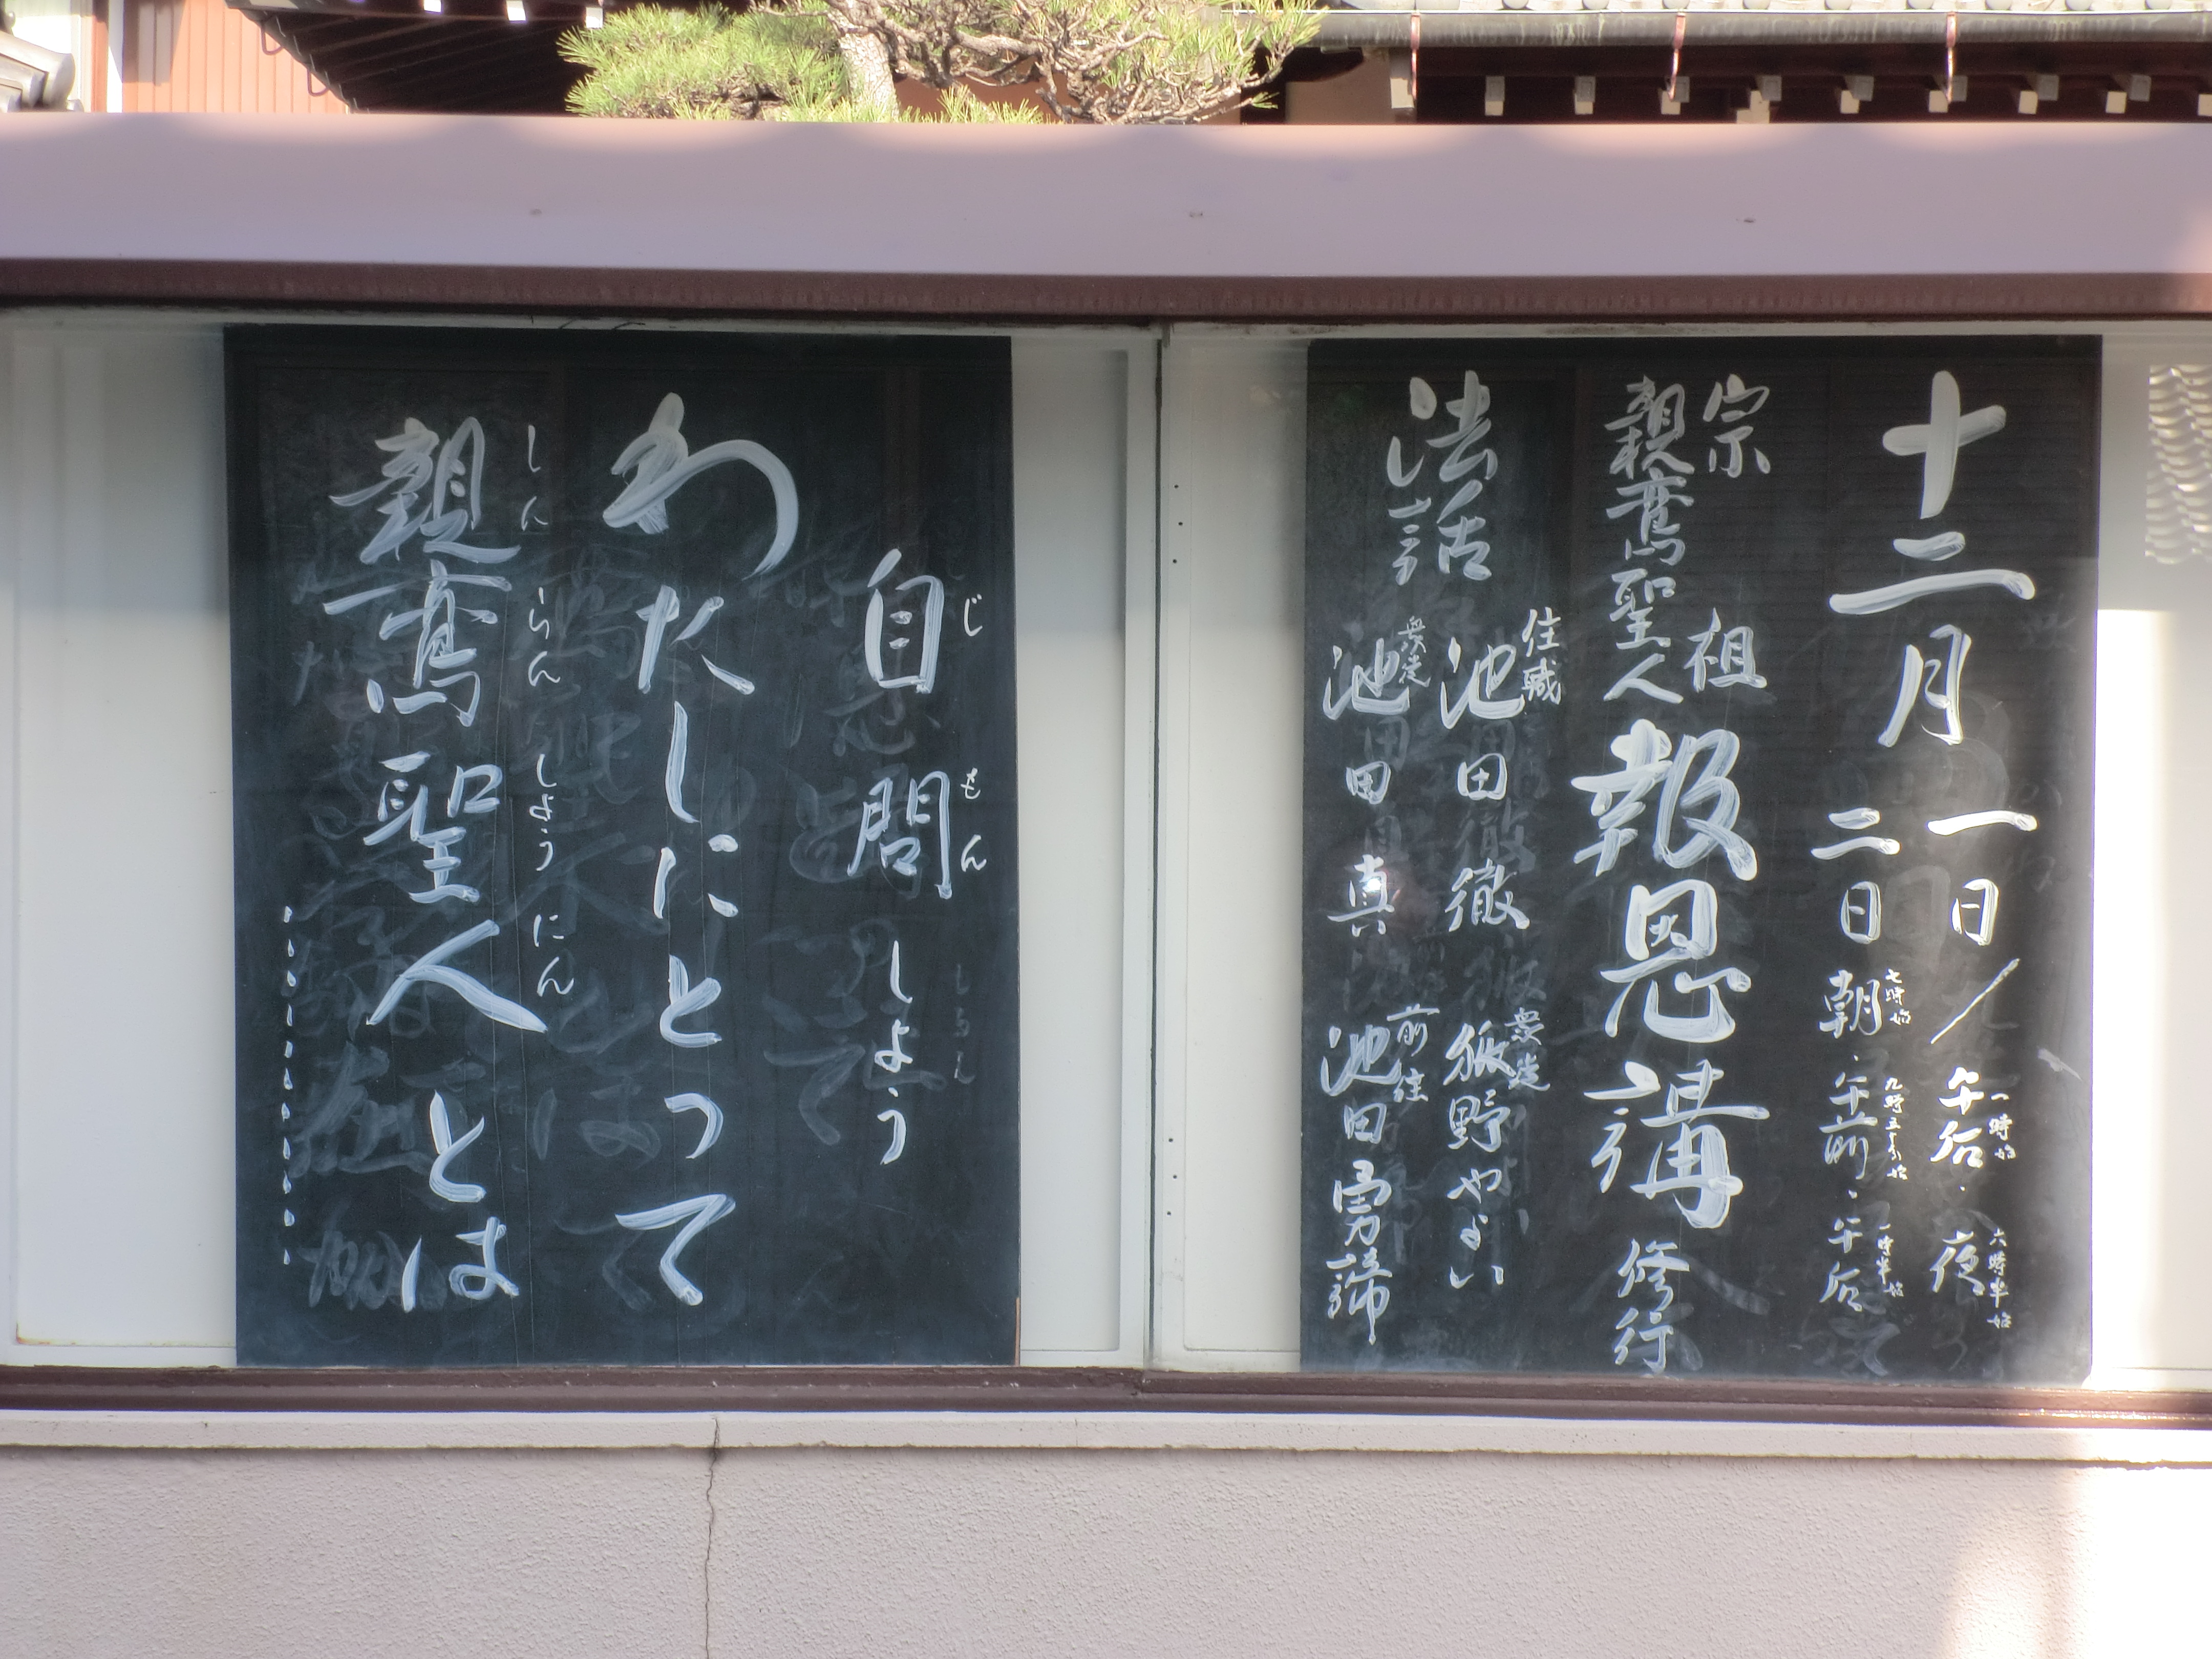 十二月
一日／午后・夜
一時始
六時半始
二日 朝・午前・午后
七時始
九時三十分始
一時半始
宗祖
親鸞聖人
報恩講 修行
法話
住職
池田 徹
衆徒
狐野やよい
衆徒
池田 真
前住
池田勇諦
自問しよう
じもん
わたしにとって
親鸞聖人とは
しんらんしょうにん
…………